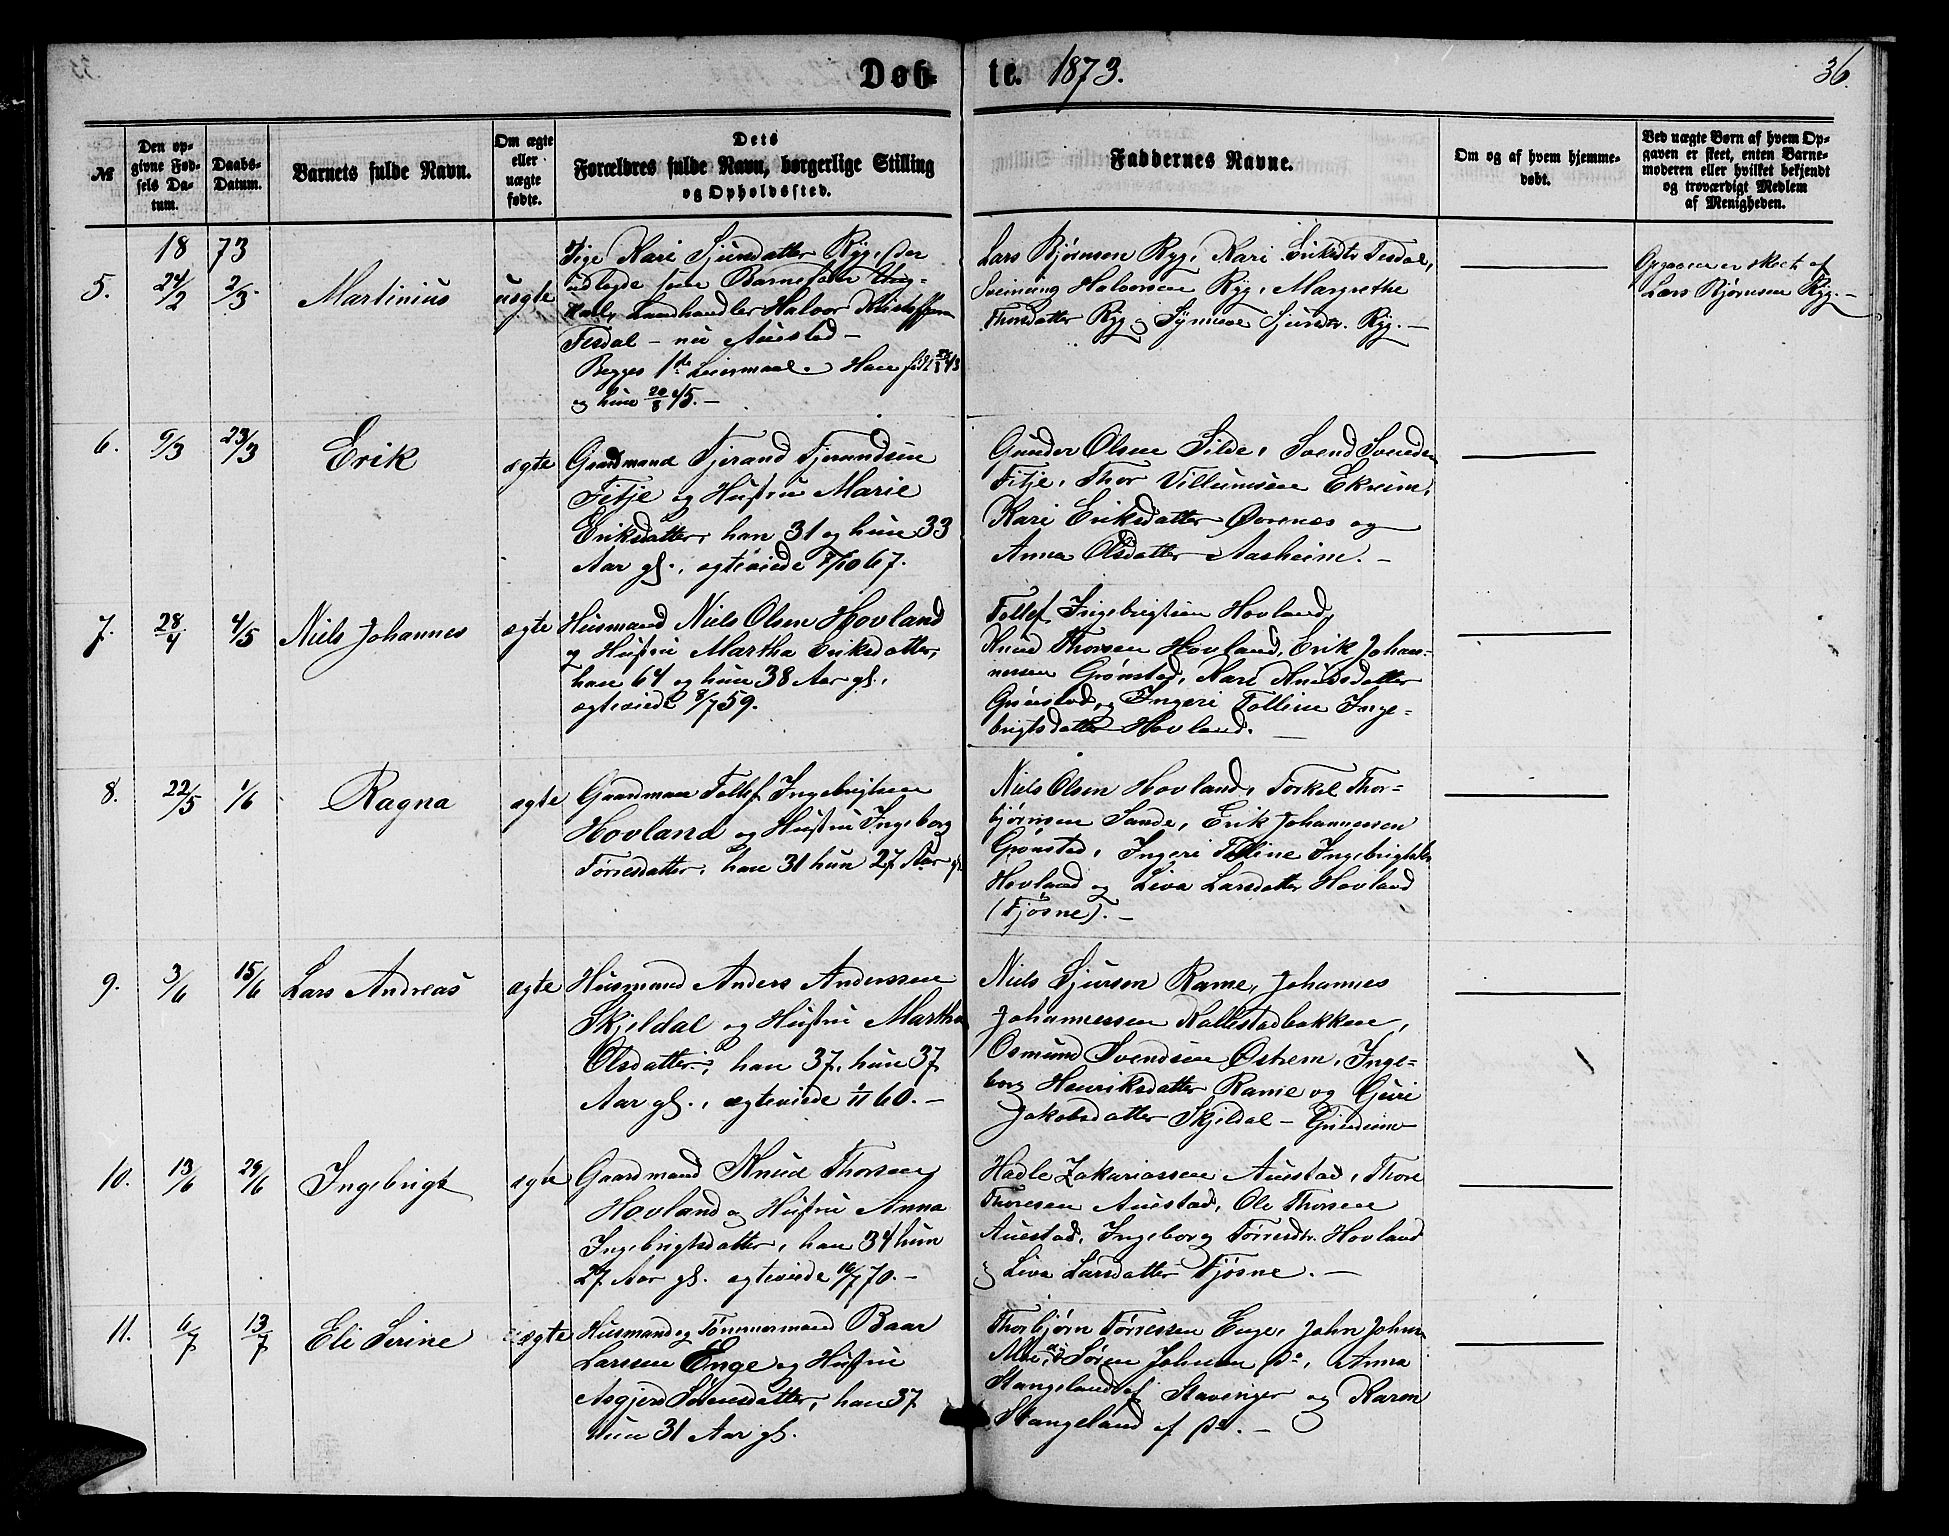 Døb- te. 1873. 36.
№
Den op-
givne Fød-
sels Da-
tum.
Daabs-
Datum.
Barnets fulde Navn.
Om ægte
eller
uægte
fødte.
Dets
Forældres fulde Navn, borgerlige Stilling
og Opholdssted.
Faddernes Navne.
Om og af hvem hjemme-
døbt.
Ved uægte Børn af hvem Op-
gaven er skeet, enten Barne-
moderen eller hvilket bekjendt
og troværdigt Medlem
af Menigheden.
18 73
5. 24/2 2/3 Martinius uægte
Pige Kari Sjursdatter Ryg, der
udlagde som Barnefader Ung-
karl, Landhandler Halvor Kristoffersen
Tesdal - nu Auestad -
Begges 1ste Leiermaal. Han født 43
og hun 20/8 45. -
Lars Bjørnsen Ryg, Kari Eriksdtr Tesdal,
Sveinung Halvorsen Ryg, Margrethe
Thorsdatter Ryg og Synneve Sjursdtr. Ryg. -
Opgaven er skeet af
Lars Bjørnsen Ryg. -
6. 9/3 23/3 Erik ægte
Gaardmand Tjerand Tjerandsen
Fitje og Hustru Marie
Eriksdatter, han 31 og hun 33
Aar gl., ægteviede 8/10 67.
Gunder Olsen Silde, Svend Svendsen
Fitje, Thor Villumsen Ekreim,
Kari Eriksdatter Øvrenes og
Anna Olsdatter Aasheim. -
7. 28/4 4/5 Niels Johannes ægte
Husmand Niels Olsen Hovland
og Hustru Martha Eriksdatter,
han 64 og hun 38 Aar gl.,
ægteviede 8/7 59.
Tollef Ingebrigtsen Hovland,
Knud Thorsen Hovland, Erik Johan-
nessen Grønstad, Kari Knudsdatter
Grønstad, og Ingeri Tolline Inge-
brigtsdatter Hovland. -
8. 22/5 1/6 Ragna ægte
Gaardmann Tollef Ingebrigtsen
Hovland og Hustru Ingeborg
Tørresdatter, han 31 hun 27 Aar gl
Niels Olsen Hovland, Torkel Thor-
bjørnsen Sande, Erik Johannessen
Grønstad, Ingeri Tolline Ingebrigtsdtr
Hovland og Liva Larsdatter Hovland
(Fjøsne). -
9. 3/6 15/6 Lars Andreas ægte
Husmand Anders Andersen
Skjeldal og Hustru Martha
Olsdatter, han 37, hun 37
Aar gl., ægteviede 1/11 60. -
Niels Sjursen Rame, Johannes
Johannessen Kallestadbakken,
Osmund Svendsen Østrem, Inge-
borg Henriksdatter Rame og Guri
Jakobsdatter Skjeldal -
10. 13/6 29/6 Ingebrigt ægte
Gaardmand Knud Thorsen
Hovland og Hustru Anna
Ingebrigtsdatter, han 34 hun
27 Aar gl. ægteviede 10/7 70. -
Hadle Zakariassen Auestad, Thore
Thoresen Auestad, Ole Thorsen
Auestad, Ingeborg Tørresdtr. Hovland
og Liva Larsdatter Fjøsne. -
11. 6/7 13/7 Eli Serine ægte
Husmand og Tømmermand Baar
Larssen Enge og Hustru
Asgjerd Svensdatter, han 37
hun 31 Aar gl.
Thorbjørn Tørressen Enge, John Johns
Moe, Søren Johnsen Do, Anna
Stangeland af Stavanger og Karen
Stangeland af Do. -